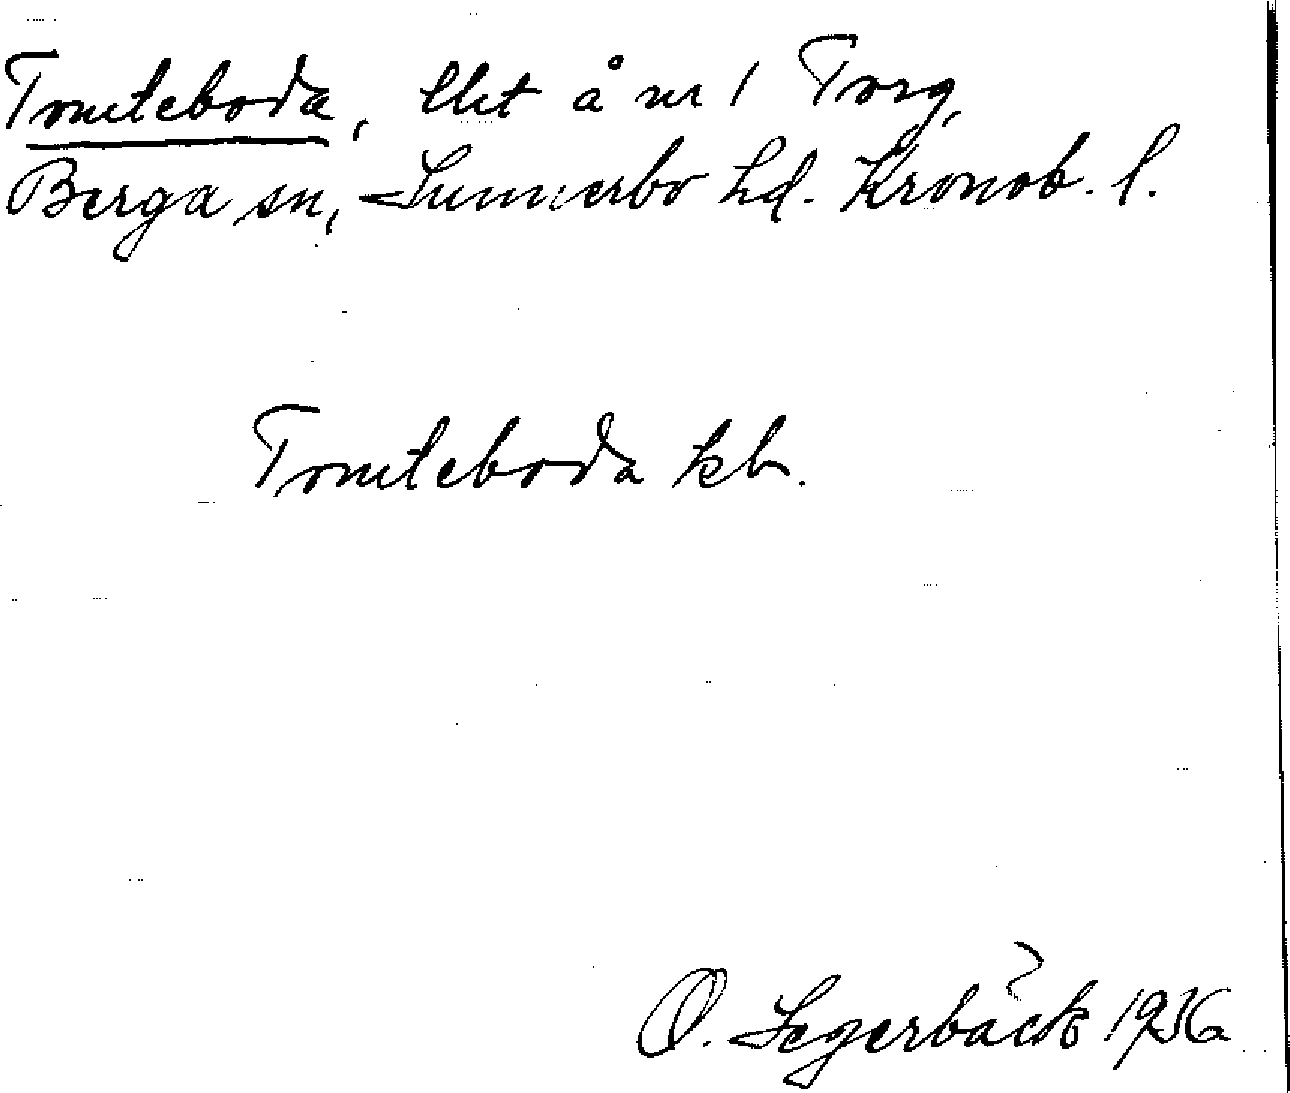 Tomteboda, lht å nr 1 Torg,
Berga sn, Sunnerbo hd. Kronob. l.
Tomteboda kb.
O. Segerbäck 1936